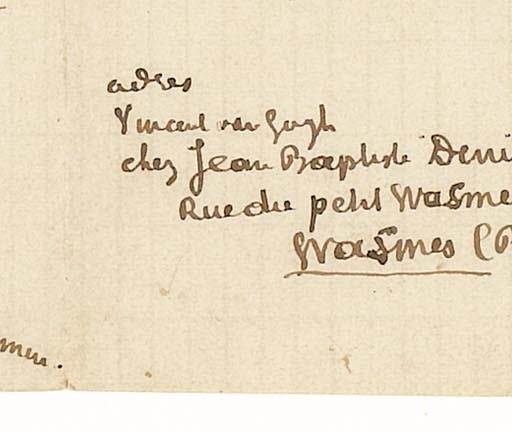 adres
Vincent van Gogh
chez Jean Baptiste Deni
Rue du petit Wasme
Wasmes (B
men.